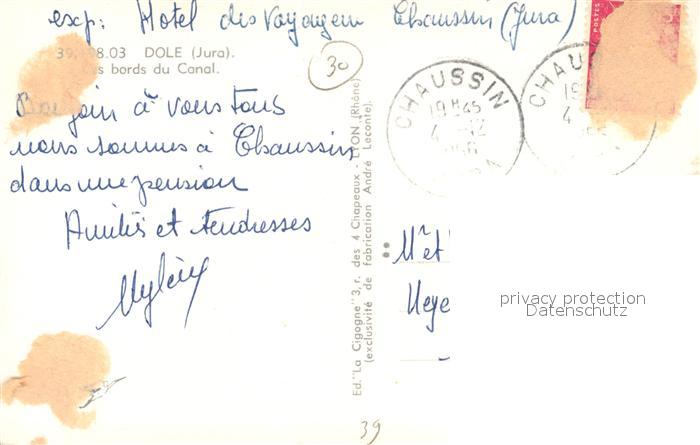 exp: Hotel des Voyageurs Chaussin (Jura)
39, 98.03 DOLE (Jura).
Les bords du Canal.
30
Bonjour à vous tous
nous sommes à Chaussin
dans une pension
Amitiés et tendresses
Ed. "La Cigogne" 3, r. des 4 Chapeaux - LYON (Rhône)
(exclusivité de fabrication André Leconte).
CHAUSSIN
19H45
4 -12
CHAU
19
4
POSTES
M et
Meye
privacy protection
Datenschutz
39